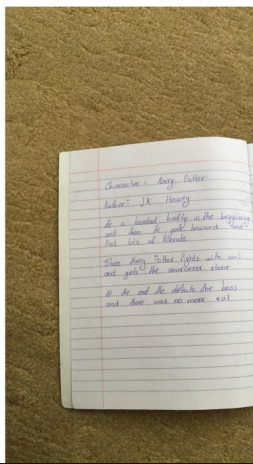 Character = Harry Potter
Author = J.K Howry
He is beated badly in the beggining
and then he gets
And lots of friends
Then Harry Potter fights with evil
and gets the sourcerer stone
At the end the defeats the boss
and there was no more evil